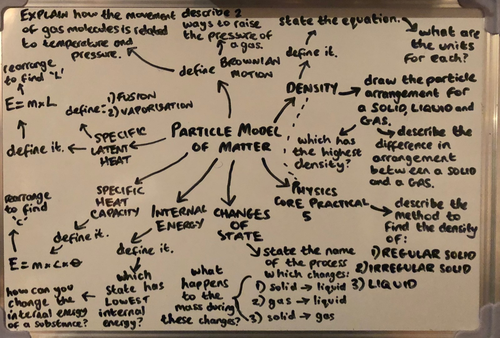 EXPLAIN how the movement
of gas molecules is related
to temperature and
pressure.
describe 2
ways to raise
the pressure of
a gas.
define BROWNIAN
MOTION
state the equation.
what are
the units
for each?
define it.
DENSITY
draw the particle
arrangement for
a SOLID, LIQUID and
GAS.
which has
the highest
density?
describe the
difference in
arrangement
between a SOLID
and a GAS.
rearrange
to find 'L'
E=m×L
define it.
define:
1) FUSION
2) VAPORISATION
SPECIFIC
LATENT
HEAT
PARTICLE MODEL
OF MATTER
PHYSICS
CORE PRACTICAL
5
describe the
method to
find the density
of:
1) REGULAR SOLID
2) IRREGULAR SOLID
3) LIQUID
SPECIFIC
HEAT
CAPACITY
define it.
rearrange
to find
'c'
E=m×c×θ
INTERNAL
ENERGY
define it.
which
state has
LOWEST
internal
energy?
how can you
change the
internal energy
of a substance?
CHANGES
OF
STATE
state the name
of the process
which changes:
1) solid → liquid
2) gas → liquid
3) solid → gas
what
happens
to the
mass during
these changes?